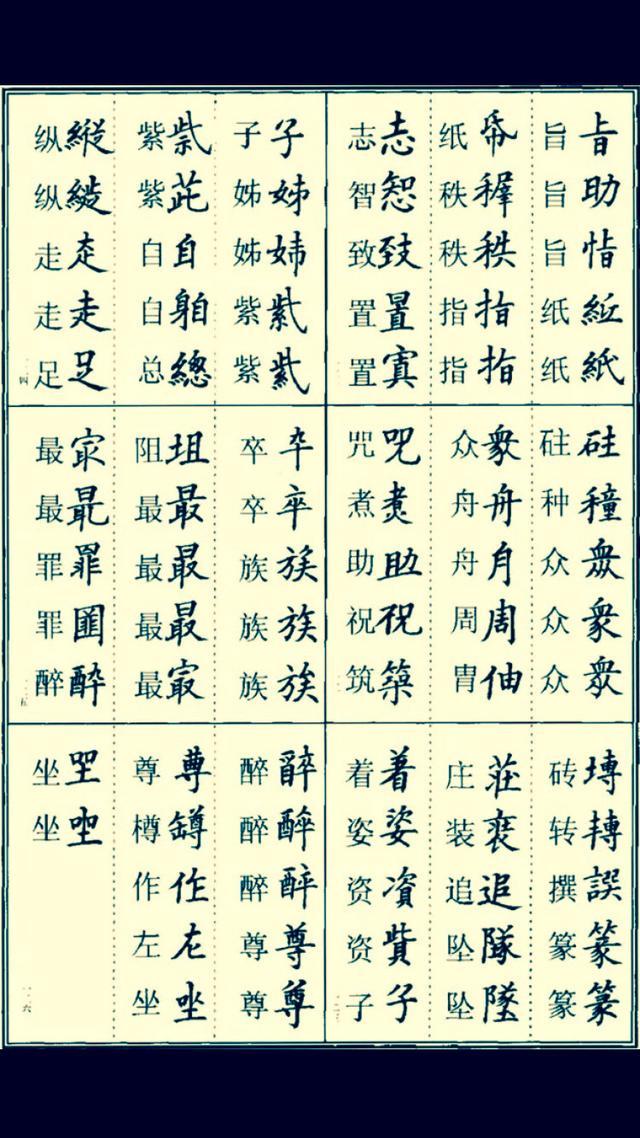 旨 㫖
旨 助
旨 恉
纸 紙
纸 紙
纸 帋
秩 稺
秩 秩
指 指
指 指
志 志
智 恕
致 致
置 置
置 寘
砫 硅
种 種
众 衆
众 衆
众 衆
众 衆
舟 舟
舟 月
周 周
胄 伷
咒 呪
煮 煑
助 助
祝 祝
筑 築
砖 塼
转 轉
撰 譔
篆 篆
篆 篆
庄 莊
装 裝
追 追
坠 隊
坠 墜
着 着
姿 姿
资 資
资 貲
子 子
子 子
姊 姊
姊 姉
紫 紫
紫 紫
紫 紫
紫 茈
自 自
自 躳
总 總
纵 縱
纵 縱
走 赱
走 走
足 足
卒 卆
卒 卒
族 族
族 族
族 族
阻 坥
最 最
最 最
最 最
最 㝡
最 㝡
最 最
罪 罪
罪 圍
醉 酔
醉 辭
醉 醉
醉 醉
尊 尊
尊 尊
尊 尊
樽 罇
作 作
左 左
坐 坐
坐 坐
坐 坐